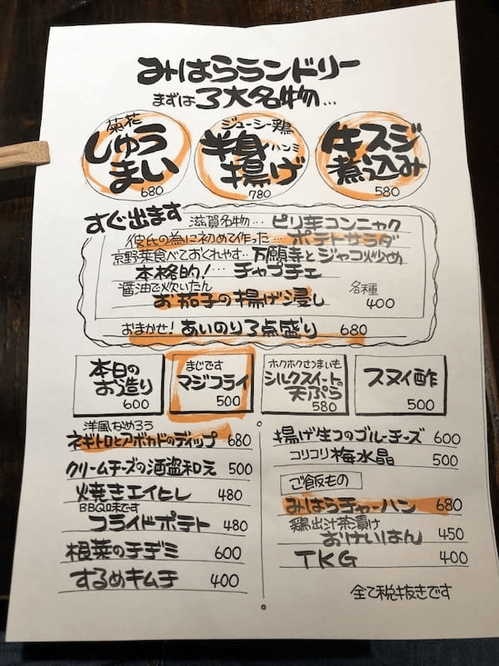 みはらランドリー
まずは3大名物…
菊花
しゅう
まい
680
ジューシー鶏
半身
ハンミ
揚げ
780
牛スジ
煮込み
580
すぐ出ます
滋賀名物… ピリ辛コンニャク
彼氏の為に初めて作った… ポテトサラダ
京野菜食べとおくれやす… 万願寺とジャコ炒め
本格的!… チャプチェ
醤油で炊いたん
お茄子の揚げ浸し
各種
400
おまかせ! あいのり3点盛り 680
本日の
お造り
600
まじです
マジフライ
500
ホクホクさつまいも
シルクスイートの
天ぷら
580
スヌイ酢
500
洋風なめろう
ネギトロとアボカドのディップ 680
クリームチーズの酒盗和え 500
焼きエイヒレ 480
BBQ味です
フライドポテト 480
根菜のチヂミ 600
するめキムチ 400
揚げ生つのゴルゴンチーズ 600
コリコリ梅水晶 500
ご飯もの
みはらチャーハン 680
鶏出汁茶漬け
おけいはん 450
TKG 400
全て税抜きです